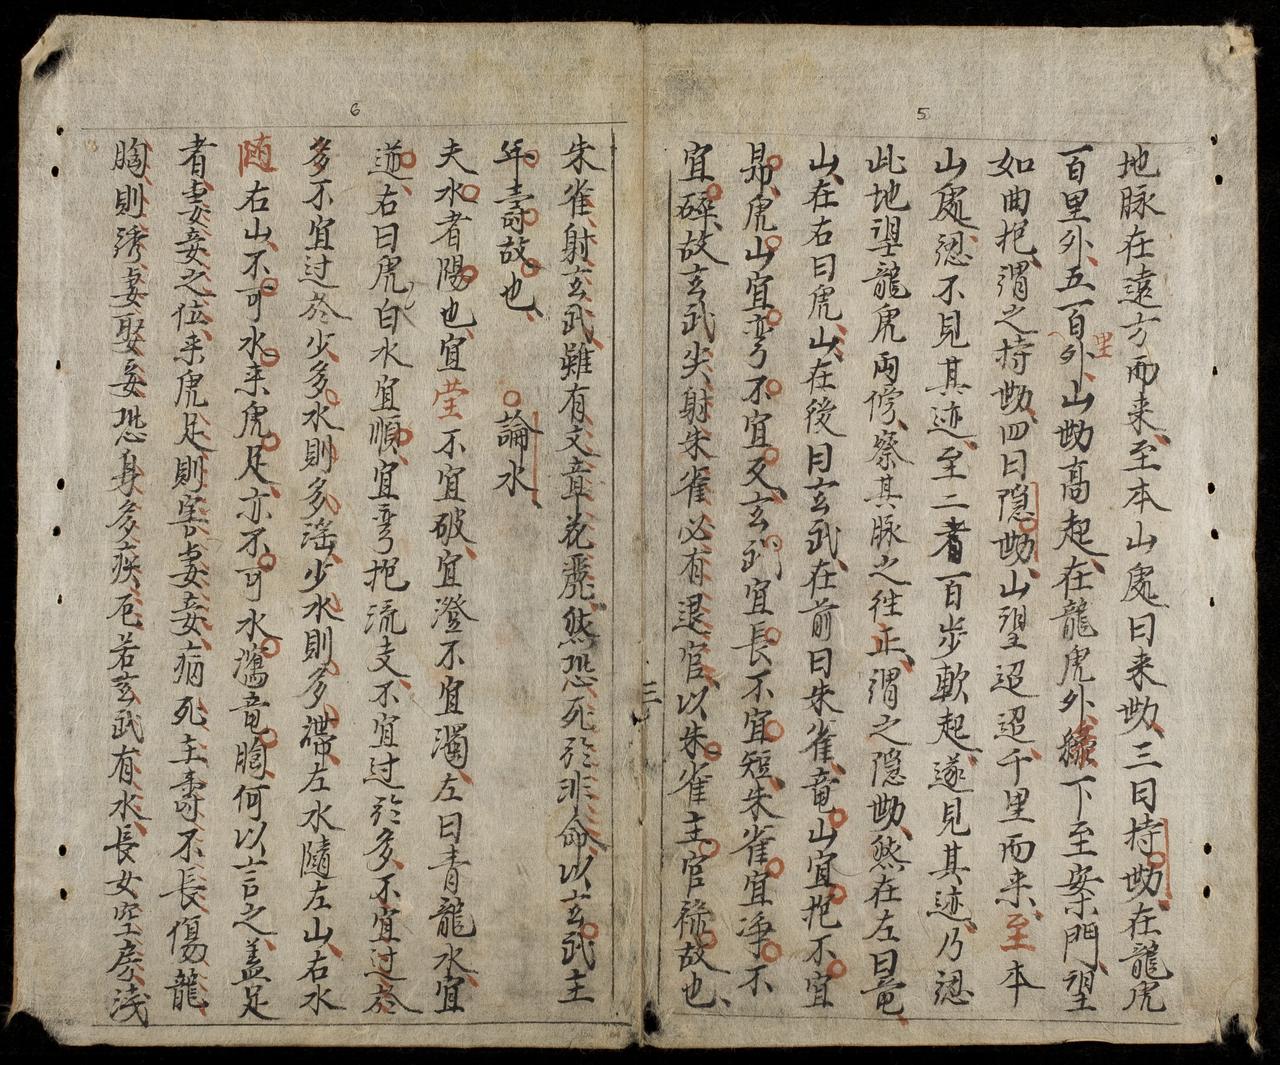 5
地脉在遠方而来至本山處曰来勢三曰持勢在龍虎
百里外五百里外山勢高起在龍虎外綠下至案門望
如曲抱謂之持勢四曰隐勢山望迢迢千里而来至本
山處忽不見其迹至二者百步軟起遂見其迹乃認
此地望龍虎両傍察其脉之往正謂之隐勢然在左曰竜
山在右曰虎山在後曰玄武在前曰朱雀竜山宜抱不宜
昂虎山宜弯不宜叉玄武宜長不宜短朱雀宜净不
宜碎故玄武尖射朱雀必有退官以朱雀主官禄故也
三
6
朱雀射玄武雖有文章花麗然恐死於非命以玄武主
年壽故也 論水
夫水者陽也宜莹不宜破宜澄不宜濁左曰青龍水宜
遊右曰虎白水宜順宜弯抱流支不宜过於多不宜过於
多不宜过於少多水則多淫少水則多滞左水隨左山右水
随右山不可水来虎足亦不可水瀉竜胸何以言之盖足
者妻妾之位来虎足則害妻妾病死主壽不長傷龍
胸則誘妻娶妾恐身多疾厄若玄武有水長女空房淺